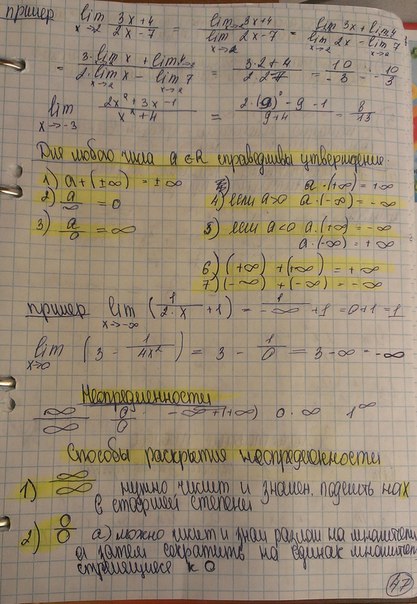 пример lim x→2 3x+4 / 2x-7 = lim x→2 3x+4 / lim x→2 2x-7 = lim 3x+lim 4 / lim x→2 2x - lim x→2 7 =
= 3·lim x→2 x + lim 4 x→2 / 2·lim x→2 x - lim x→2 7 = 3·2+4 / 2·2-7 = 10 / -3 = -10/3
lim x→-3 2x²+3x-1 / x²+4 = 2·(9)-9-1 / 9+4 = 8/13
Для любого числа a∈R справедливы утверждение:
1) a+(±∞) = ±∞ a·(+∞) = +∞
2) a/∞ = 0 4) если a>0 a·(-∞) = -∞
3) a/0 = ∞ 5) если a<0 a·(+∞) = -∞
a·(-∞) = +∞
6) (+∞) + (+∞) = +∞
7) (-∞) + (-∞) = -∞
пример lim x→-∞ (1/2·x +1) = 1/-∞ +1 = 0+1 = 1
lim x→0 (3 - 1/4x²) = 3 - 1/0 = 3-∞ = -∞
Неопределенности
∞/∞ 0/0 -∞+(+∞) 0·∞ 1^∞
Способы раскрытия неопределенности
1) ∞/∞ нужно числит и знамен. поделить на x
в старшей степени
2) 0/0 а) можно числит и знам разлож на множители
а затем сократить на одинак множители
стремящиеся к 0
47